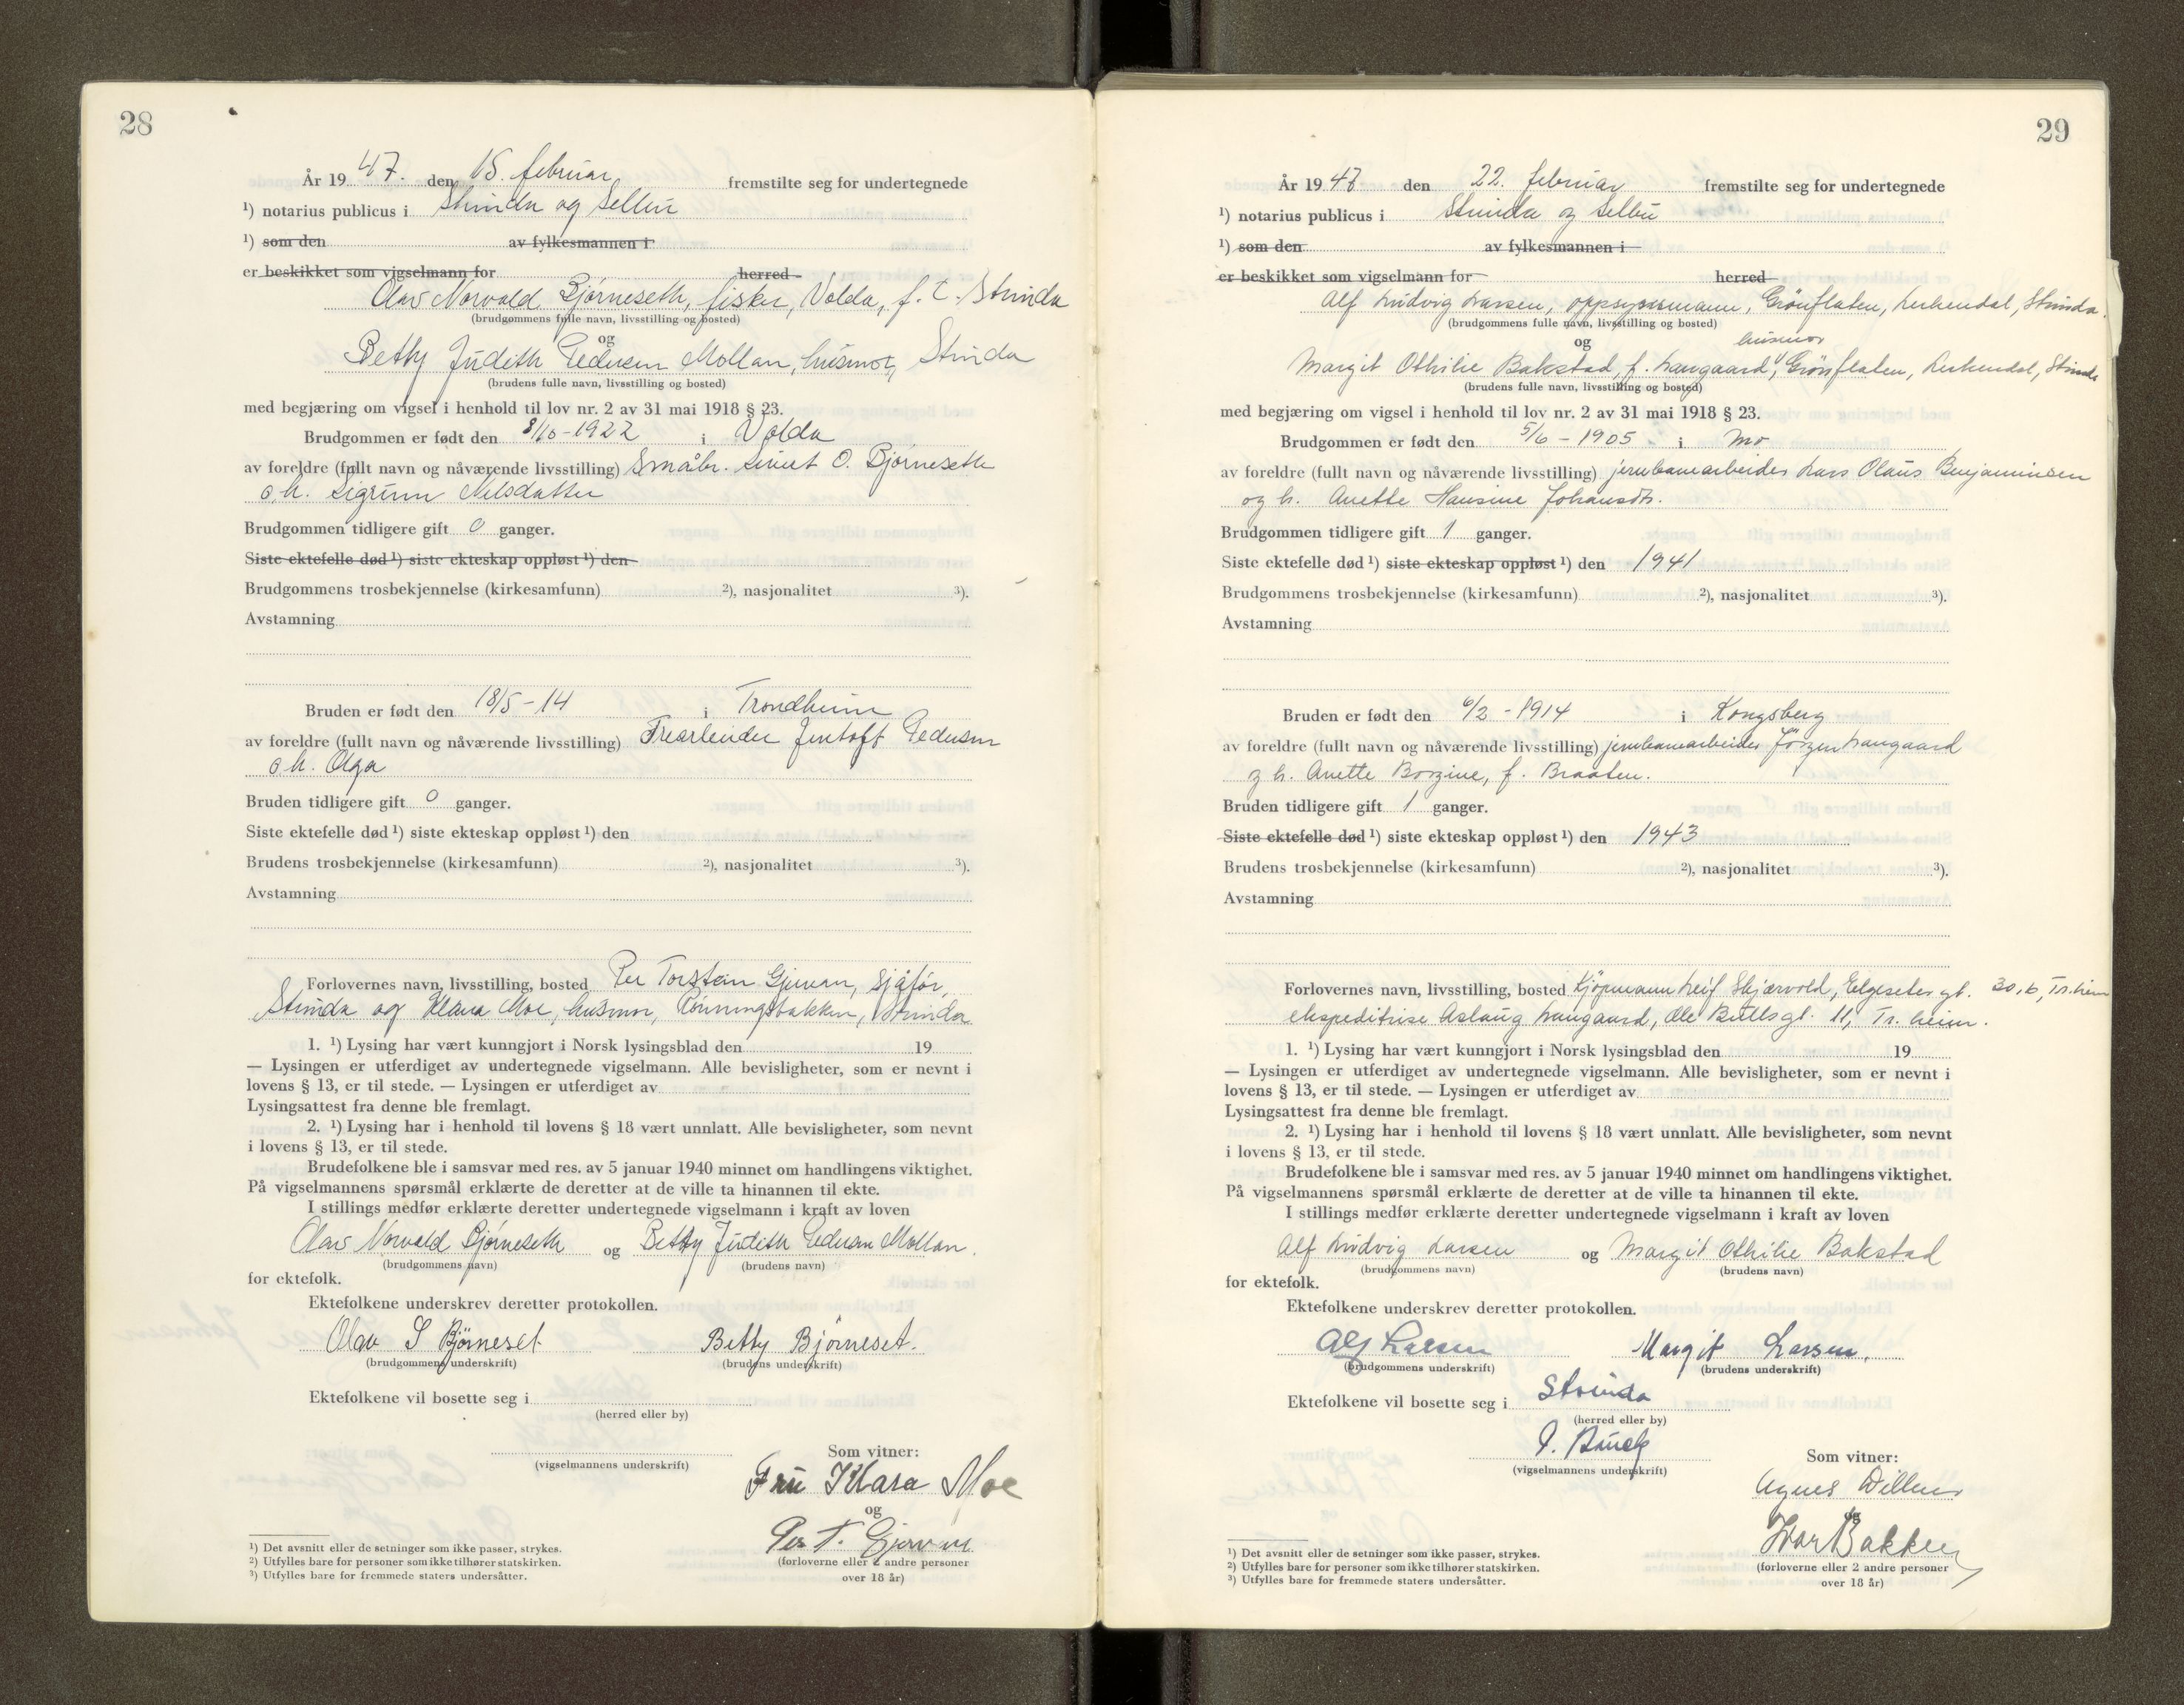 28
År 19 47. den 15. februar fremstilte seg for undertegnede
¹) notarius publicus i Strinda og Selbu
¹) som den av fylkesmannen i
er beskikket som vigselmann for herred
Olav Norvald Bjørneseth, fisker, Volda, f. t. Strinda
(brudgommens fulle navn, livsstilling og bosted)
og
Betty Judith Pedersen Mollan, husmor, Strinda
(brudens fulle navn, livsstilling og bosted)
med begjæring om vigsel i henhold til lov nr. 2 av 31 mai 1918 § 23.
Brudgommen er født den 8/10-1922 i Volda
av foreldre (fullt navn og nåværende livsstilling) Småbr. Sivert O. Bjørneseth
o.h. Sigrunn Nilsdatter
Brudgommen tidligere gift 0 ganger.
Siste ektefelle død ¹) siste ekteskap oppløst ¹) den
Brudgommens trosbekjennelse (kirkesamfunn) ²), nasjonalitet ³).
Avstamning
Bruden er født den 18/5-14 i Trondheim
av foreldre (fullt navn og nåværende livsstilling) Trearbeider Jentoft Pedersen
o.h. Olga
Bruden tidligere gift 0 ganger.
Siste ektefelle død ¹) siste ekteskap oppløst ¹) den
Brudens trosbekjennelse (kirkesamfunn) ²), nasjonalitet ³).
Avstamning
Forlovernes navn, livsstilling, bosted Per Torstein Gjervan, sjåfør,
Strinda og Klara Moe, husmor, Rønningsbakken, Strinda
1. ¹) Lysing har vært kunngjort i Norsk lysingsblad den 19
— Lysingen er utferdiget av undertegnede vigselmann. Alle bevisligheter, som er nevnt i
lovens § 13, er til stede. — Lysingen er utferdiget av
Lysingsattest fra denne ble fremlagt.
2. ¹) Lysing har i henhold til lovens § 18 vært unnlatt. Alle bevisligheter, som nevnt
i lovens § 13, er til stede.
Brudefolkene ble i samsvar med res. av 5 januar 1940 minnet om handlingens viktighet.
På vigselmannens spørsmål erklærte de deretter at de ville ta hinannen til ekte.
I stillings medfør erklærte deretter undertegnede vigselmann i kraft av loven
Olav Norvald Bjørneseth og Betty Judith Pedersen Mollan.
(brudgommens navn) (brudens navn)
for ektefolk.
Ektefolkene underskrev deretter protokollen.
Olav S Bjørneset Betty Bjørneset.
(brudgommens underskrift) (brudens underskrift)
Ektefolkene vil bosette seg i
(herred eller by)
Som vitner:
(vigselmannens underskrift)
Fru Klara Moe
og
Per T. Gjervan
(forloverne eller 2 andre personer
over 18 år)
¹) Det avsnitt eller de setninger som ikke passer, strykes.
²) Utfylles bare for personer som ikke tilhører statskirken.
³) Utfylles bare for fremmede staters undersåtter.
29
År 19 47 den 22. februar fremstilte seg for undertegnede
¹) notarius publicus i Strinda og Selbu
¹) som den av fylkesmannen i
er beskikket som vigselmann for herred
Alf Ludvig Larsen, oppsynsmann, Grönflaten, Lerkendal, Strinda.
(brudgommens fulle navn, livsstilling og bosted)
og husmor
Margit Othilie Bakstad, f. Langaard, Grönflaten, Lerkendal, Strinda
(brudens fulle navn, livsstilling og bosted)
med begjæring om vigsel i henhold til lov nr. 2 av 31 mai 1918 § 23.
Brudgommen er født den 5/6 - 1905 i Mo
av foreldre (fullt navn og nåværende livsstilling) jernbanearbeider Lars Olaus Benjaminsen
og h. Anette Hansine Johansdtr.
Brudgommen tidligere gift 1 ganger.
Siste ektefelle død ¹) siste ekteskap oppløst ¹) den 1941
Brudgommens trosbekjennelse (kirkesamfunn) ²), nasjonalitet ³).
Avstamning
Bruden er født den 6/2 - 1914 i Kongsberg
av foreldre (fullt navn og nåværende livsstilling) jernbanearbeider Jörgen Langaard
og h. Anette Borgine, f. Braaten.
Bruden tidligere gift 1 ganger.
Siste ektefelle død ¹) siste ekteskap oppløst ¹) den 1943
Brudens trosbekjennelse (kirkesamfunn) ²), nasjonalitet ³).
Avstamning
Forlovernes navn, livsstilling, bosted Kjöpmann Leif Skjærvold, Elgeseter gt. 30, b, Tr.heim
ekspeditrise Aslaug Langaard, Ole Bulls gt. 11, Tr. heim.
1. ¹) Lysing har vært kunngjort i Norsk lysingsblad den 19
— Lysingen er utferdiget av undertegnede vigselmann. Alle bevisligheter, som er nevnt i
lovens § 13, er til stede. — Lysingen er utferdiget av
Lysingsattest fra denne ble fremlagt.
2. ¹) Lysing har i henhold til lovens § 18 vært unnlatt. Alle bevisligheter, som nevnt
i lovens § 13, er til stede.
Brudefolkene ble i samsvar med res. av 5 januar 1940 minnet om handlingens viktighet.
På vigselmannens spørsmål erklærte de deretter at de ville ta hinannen til ekte.
I stillings medfør erklærte deretter undertegnede vigselmann i kraft av loven
Alf Ludvig Larsen og Margit Othilie Bakstad
(brudgommens navn) (brudens navn)
for ektefolk.
Ektefolkene underskrev deretter protokollen.
Alf Larsen Margit Larsen.
(brudgommens underskrift) (brudens underskrift)
Ektefolkene vil bosette seg i Strinda
(herred eller by)
(vigselmannens underskrift)
Som vitner:
Agnes Dillen
og
Ivar Bakken
(forloverne eller 2 andre personer
over 18 år)
¹) Det avsnitt eller de setninger som ikke passer, strykes.
²) Utfylles bare for personer som ikke tilhører statskirken.
³) Utfylles bare for fremmede staters undersåtter.